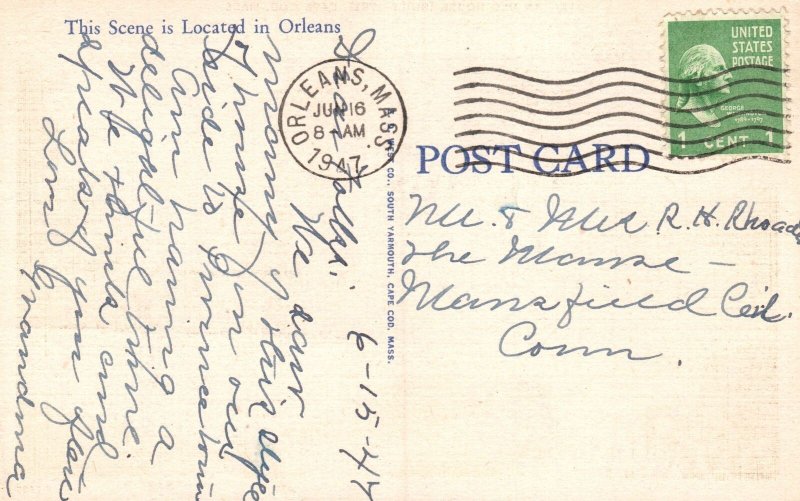 This Scene is Located in Orleans
ORLEANS, MASS.
JUN 16
8-AM
1947
UNITED
STATES
POSTAGE
GEORGE
WASHINGTON
1789-1797
1 CENT 1
POST CARD
WEST CO., SOUTH YARMOUTH, CAPE COD, MASS.
Mr. & Mrs R. H. Rhoades
The Manse -
Mansfield Cent.
Conn.
6-15-47
Dear Folks:
We saw
many of this type
house on our
ride to Provincetown
Am having a
delightful time.
We think and
speak of you often
Love
Grandma